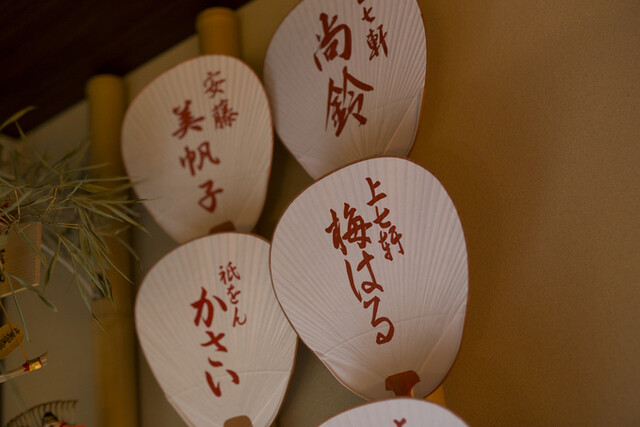 上七軒
尚鈴
安藤
美帆子
上七軒
梅はる
祇をん
かさい